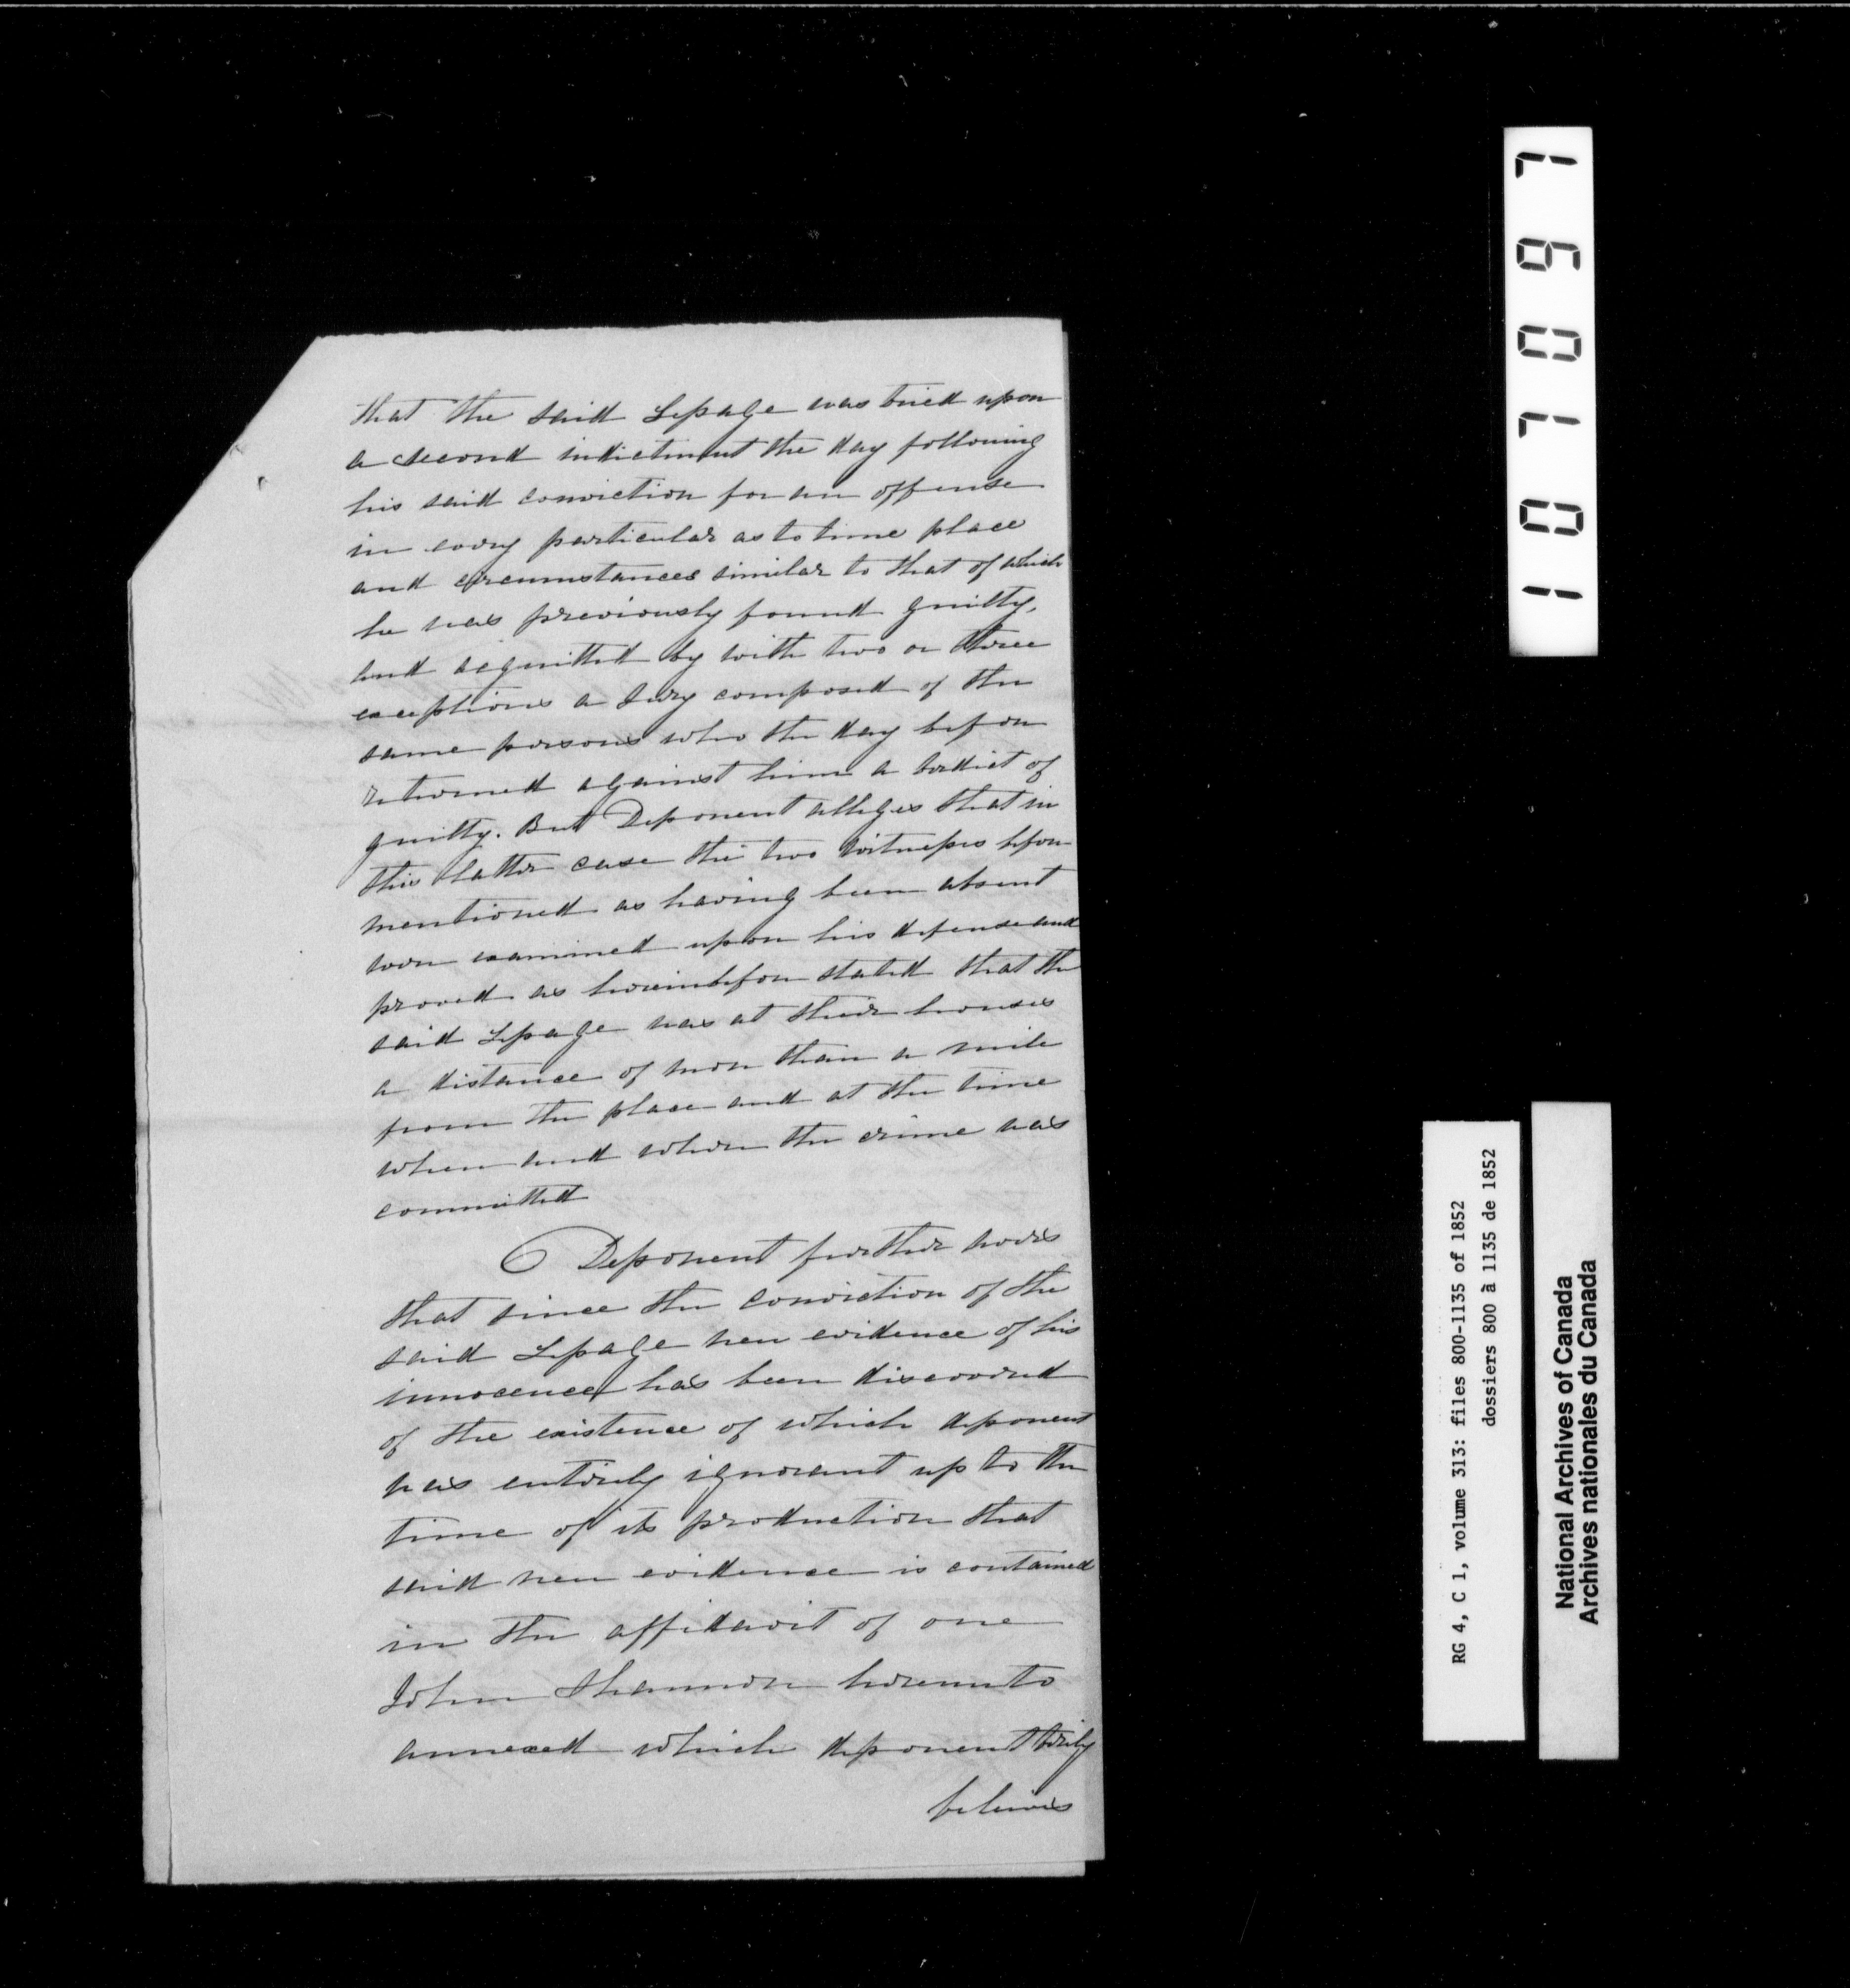 that the said Lepage was tried upon
a second indictment the day following
his said conviction for an offense
in every particular as to time place
and circumstances similar to that of which
he was previously found guilty,
and acquitted by with two or three
exceptions a Jury composed of the
same persons who the day before
returned against him a verdict of
guilty. But Deponent alleges that in
this latter case the two witnesses before
mentioned as having been absent
were examined upon his defense and
proved as hereinbefore stated that the
said Lepage was at their houses
a distance of more than a mile
from the place and at the time
when and where the crime was
committed
Deponent further avers
that since the conviction of the
said Lepage new evidence of his
innocence has been discovered
of the existence of which deponent
was entirely ignorant up to the
time of its production that
said new evidence is contained
in the affidavit of one
John Shannon hereunto
annexed which deponent verily
believes
101097
RG 4, C 1, volume 313: files 800-1135 of 1852
dossiers 800 à 1135 de 1852
National Archives of Canada
Archives nationales du Canada